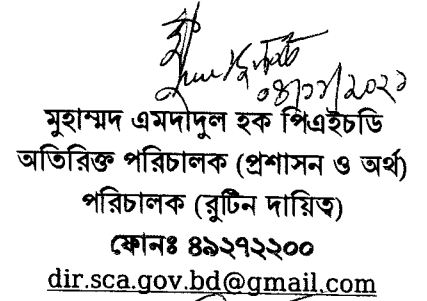 মুহাম্মদ এমদাদুল হক পিএইচডি
অতিরিক্ত পরিচালক (প্রশাসন ও অর্থ)
পরিচালক (রুটিন দায়িত্ব)
ফোনঃ ৪৯২৭২২০০
dir.sca.gov.bd@gmail.com